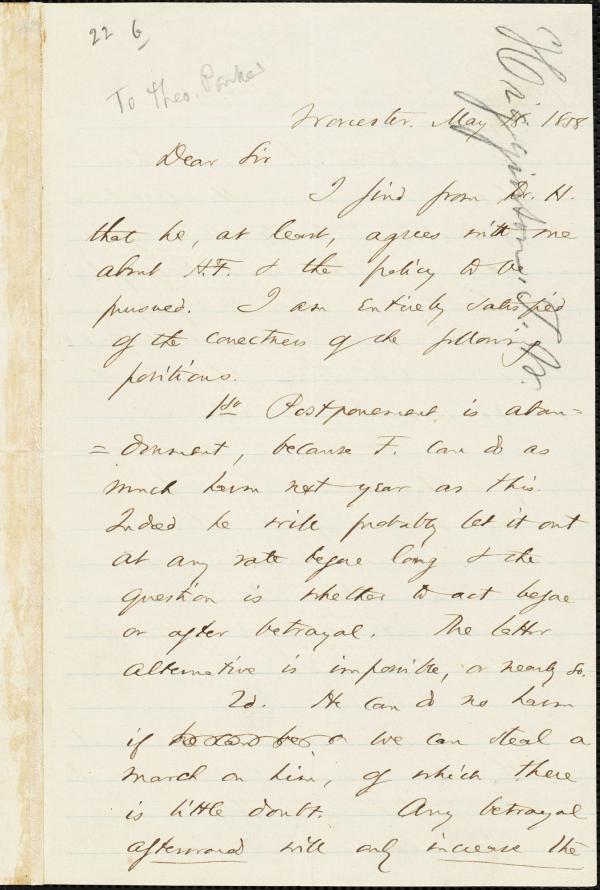 22 6
To Theo. Parker
Higginson, T. W.
Worcester. May 18 1858
Dear Sir
I find from Dr. H.
that he, at least, agrees with me
about H.F. & the policy to be
pursued. I am entirely satisfied
of the correctness of the following
positions.
1st Postponement is aban=
=donment, because F. can do as
much harm next year as this.
Indeed he will probably let it out
at any rate before long & the
question is whether to act before
or after betrayal. The latter
alternative is impossible, or nearly so.
2d. He can do no harm
if we can steal a
march on him, of which there
is little doubt. Any betrayal
afterward will only increase the